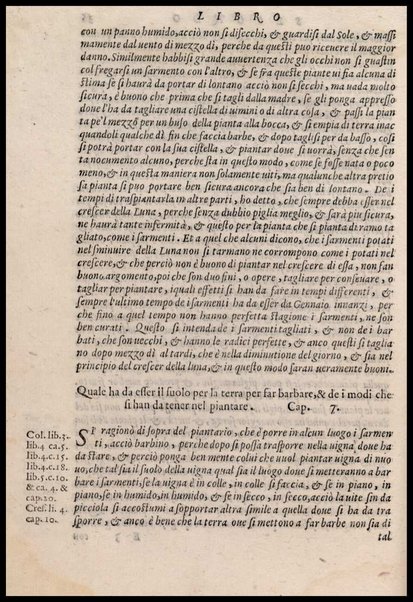 LIBRO
con un panno humido, acciò non si disecchi, & guardisi dal Sole, & massi
mamente dal uento di mezzo dì, perche da questi puo riceuere il maggior
danno. Similmente habbisi grande auuertenza che gli occhi non si guastin
col fregarsi un sarmento con l'altro, & se fra queste piante ui sia alcuna di
stima se si haurà da portar di lontano acciò non si secchi, ma uada molto
sicura, è buono che prima che si tagli dalla madre, se gli ponga appresso
doue l'ha da tagliare una cistella di uimini o di altra cosa, & passi la pian
ta pe'l mezzo per un buso della pianta alla bocca, & si empia di terra inac
quandoli qualche dì fin che faccia barbe, & dopo taglisi per da basso, così
si potrà portar con la sua cistella, & piantar doue si uorrà, senza che sen
ta nocumento alcuno, perche sta in questo modo, come se fosse nata o poco
meno, & in questa maniera non solamente uiti, ma qualunche altra pretio
sa pianta si puo portare ben sicura ancora che sia ben di lontano. De i
tempi di traspiantarla in altre parti, ho detto, che sempre debba esser nel
crescer della Luna, perche senza dubbio piglia meglio, & sarà piu sicura,
ne haurà tante infermità, & questo per la pianta che si pianta di ramo ta
gliato, come i sarmenti. Et a quel che alcuni dicono, che i sarmenti potati
nel sminuire della Luna non si tarmano ne corrompono come i potati nel
crescere, & che perciò non è buono di piantar nel crescere di essa, non fan
buono argomento, poi che son duo fini, o opere, tagliare per conseruare, o
tagliar per piantare, iquali effetti si han da fare in tempi differenti, &
sempre l'ultimo tempo de i sarmenti ha da esser da Gennaio innanzi, per
che fino a quel tempo non hanno perfetta stagione i sarmenti, ne son
ben curati. Questo si intende de i sarmenti tagliati, & non de i bar
bati, che son uecchi, & hanno le radici perfette, & anco questi si taglia
no dopo mezzo dì al tardi, che è nella diminutione del giorno, & sia nel
principio del crescer della luna, & in questo modo saran ueramente buoni.
Quale ha da esser il suolo per la terra per far barbare, & de i modi che
si han da tener nel piantare. Cap. 7.
Col. lib. 3.
lib. 4 ca. 5.
lib. 4. c. 15.
lib. 4. c. 18.
lib. 5. c. 10.
& ca. 4. &
cap. 20.
Cres. li. 4.
cap. 10.
SI ragionò di sopra del piantario, che è porre in alcun luogo i sarmen
ti, acciò barbino, perche dopo si possa trasporre nella uigna doue ha
da stare, & perciò ponga ben mente colui che uuol piantar uigna di nuo
uo, che tal sia il suolo della uigna qual sia il luogo doue si metteranno a bar
bare i sarmenti, se la uigna è in colle, in colle si faccia, & se in piano, in
piano, se in humido, in humido, & se in secco, in secco, acciò la uite sin da
picciola si accostumi a sopportar altra simile a quella doue si ha da tra
sporre, & anco è bene che la terra oue si mettono a far barbe non sia di
tal